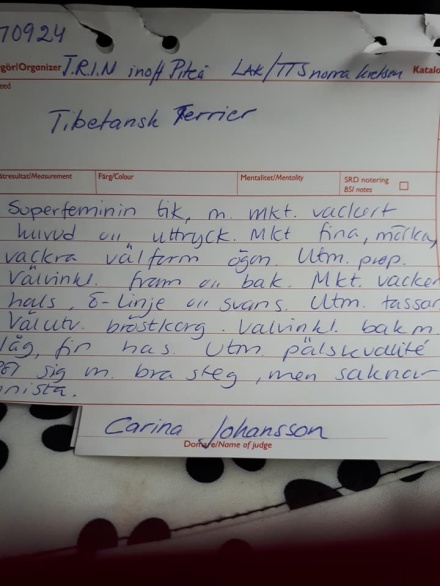 70924
gör/Organizer T.R.I.N inoff Piteå LAK/TTS norra kretsen Katalo
eed
Tibetansk Terrier
ätresultat/Measurement Färg/Colour Mentalitet/Mentality SRD notering
BSI notes
Superfeminin tik, m. mkt. vackert
huvud o uttryck. Mkt fina, mörka,
vackra välform ögon. Utm. prop.
Välvinkl. fram o bak. Mkt. vacker
hals, ö-linje o svans. Utm. tassar
Välutv. bröstkorg. Välvinkl. bak m
låg, fin has. Utm. pälskvalité
sig m. bra steg, men saknar
nista.
Carina Johansson
Domare/Name of judge